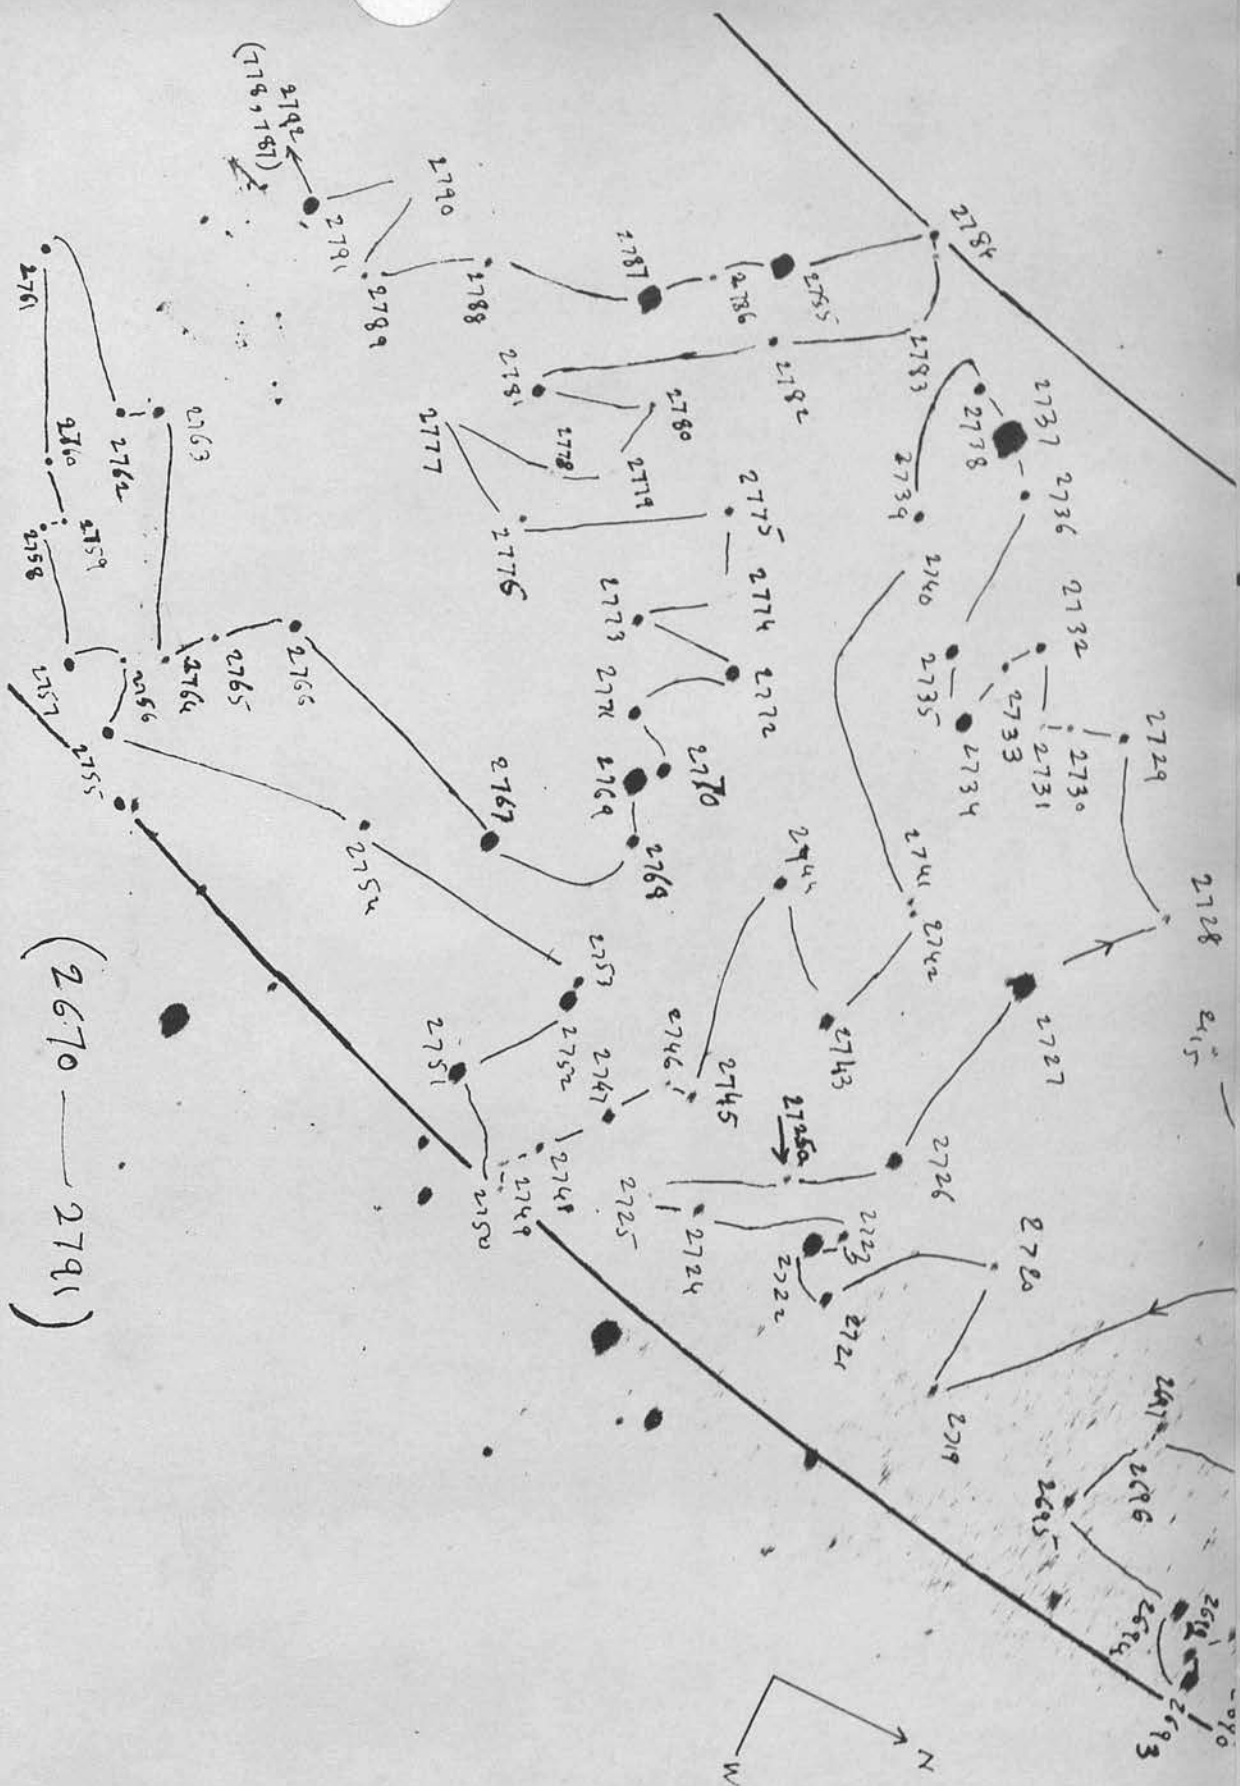 2784
2783
2785
2786
2787
2788
2789
2790
2791
2792
(778, 787)
2782
2781
2780
2779
2778
2777
2776
2775
2774
2773
2772
2771
2770
2769
2768
2767
2766
2765
2764
2763
2762
2761
2760
2759
2758
2757
2756
2755
2754
2753
2752
2751
2750
2749
2748
2747
2746
2745
2744
2743
2742
2741
2740
2739
2738
2737
2736
2735
2734
2733
2732
2731
2730
2729
2728
2727
2726
2725a
2725
2724
2723
2722
2721
2720
2719
2697
2696
2695
2694
2693
N
W
(2670 — 2791)